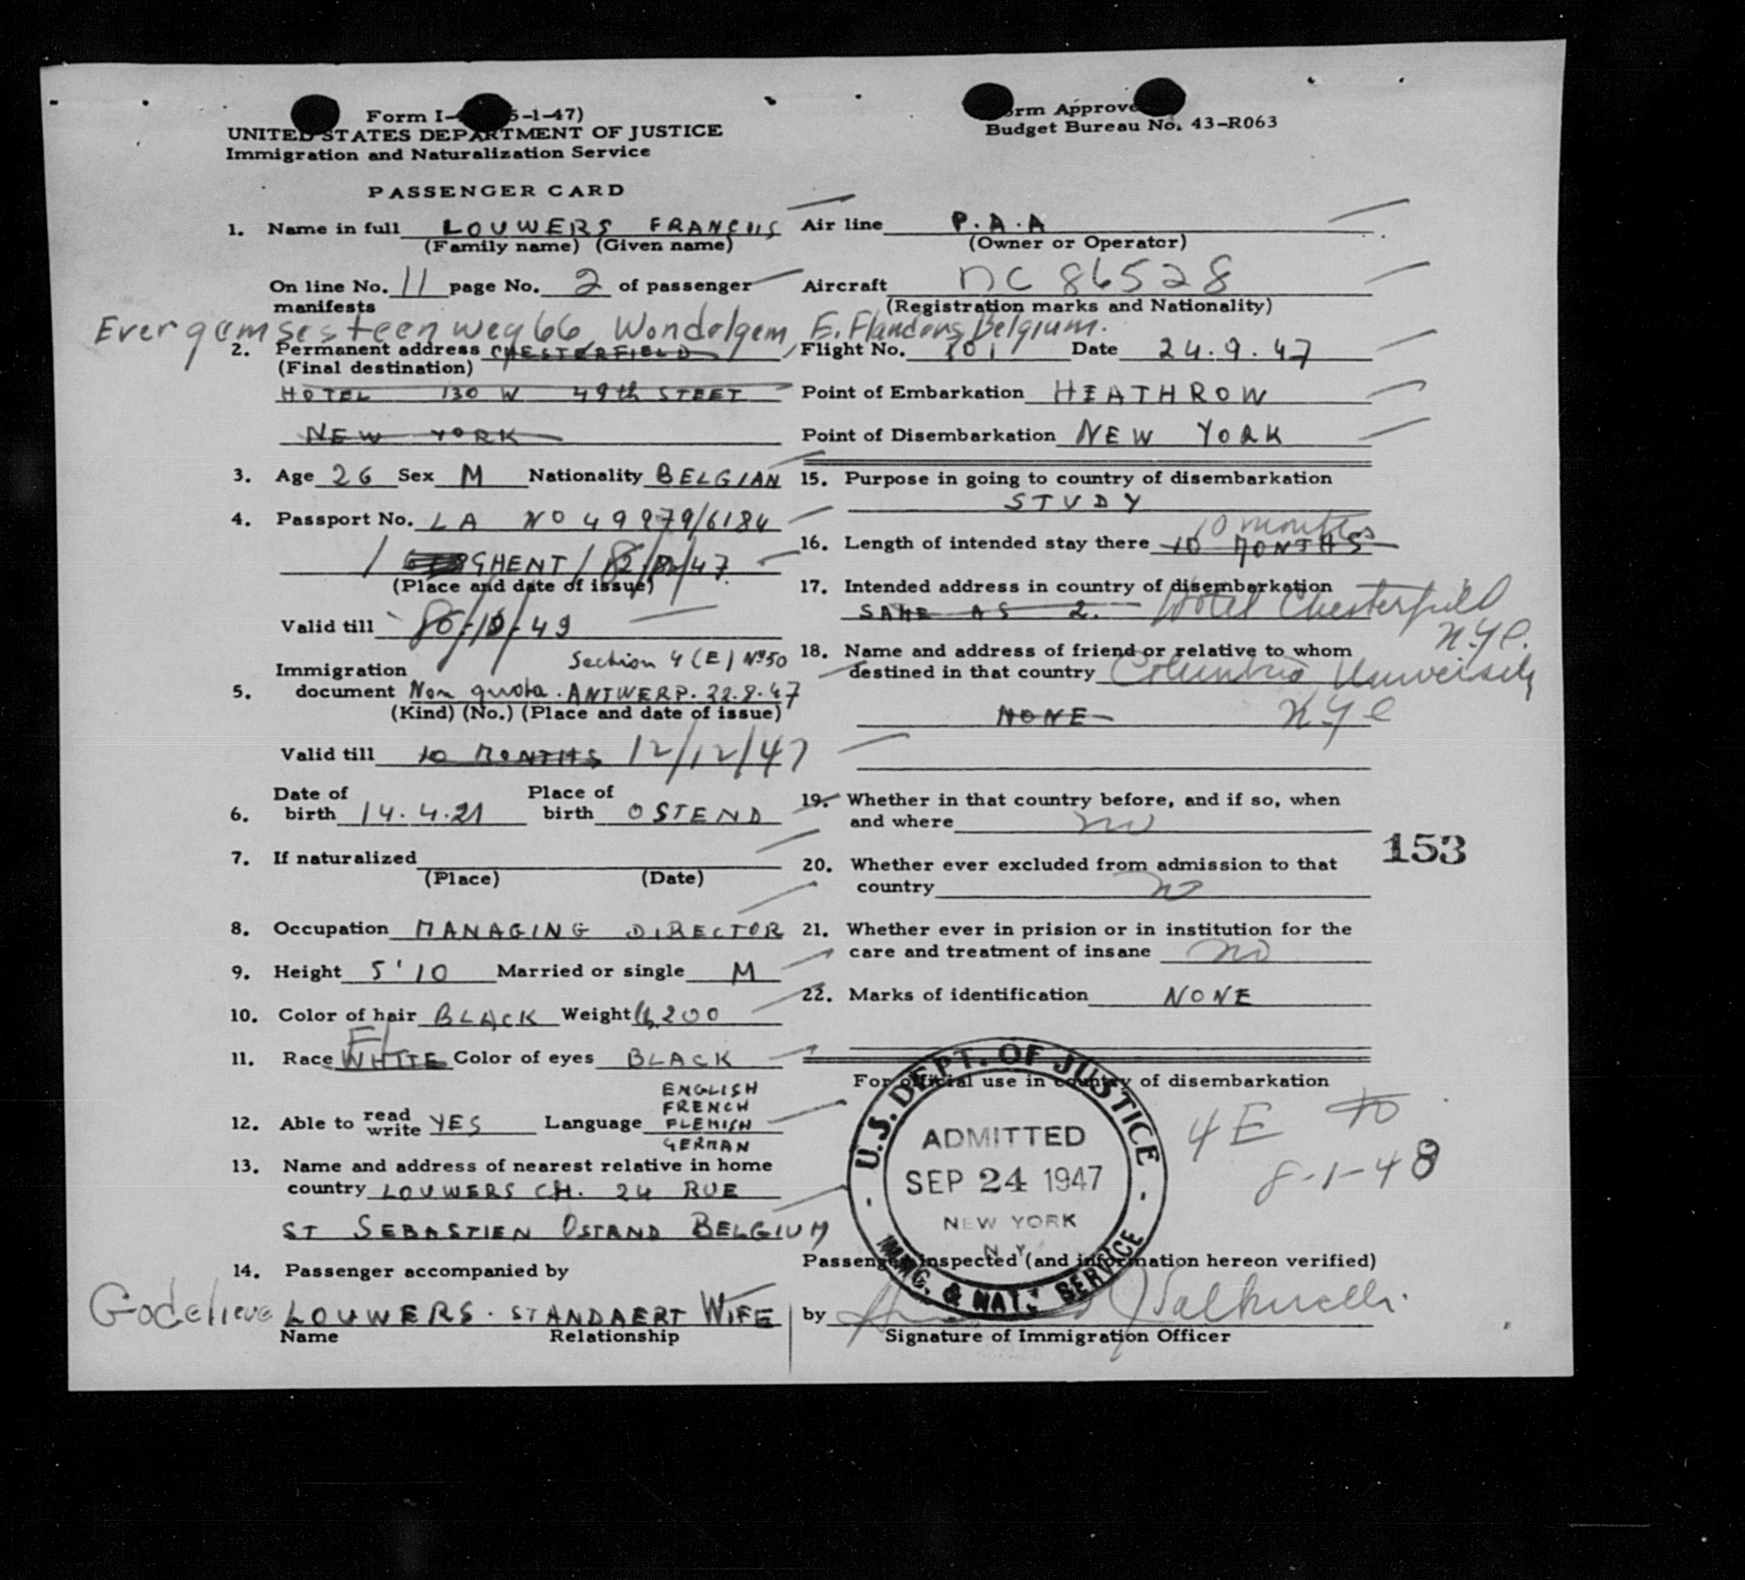 Form I- 5-1-47)
UNITED STATES DEPARTMENT OF JUSTICE
Immigration and Naturalization Service
PASSENGER CARD
Form Approve
Budget Bureau No. 43-R063
1. Name in full LOUWERS FRANCIIS
(Family name) (Given name)
On line No. 11 page No. 2 of passenger
manifests
Evergemsesteenweg 66 Wondelgem E. Flanders Belgium.
2. Permanent address CHESTERFIELD
(Final destination)
HOTEL 130 W 49th STEET
NEW YORK
3. Age 26 Sex M Nationality BELGIAN
4. Passport No. LA NO 49979/6184
/ GHENT / /47
(Place and date of issue)
Valid till 49
Section 4 (E) Nº50
Immigration
5. document Non quota. ANTWERP. 22.8.47
(Kind) (No.) (Place and date of issue)
Valid till 10 MONTHS 12/12/47
6. Date of birth 14.4.21 Place of birth OSTEND
7. If naturalized
(Place) (Date)
8. Occupation MANAGING DIRECTOR
9. Height 5'10 Married or single M
10. Color of hair BLACK Weight 200
Fl
11. Race WHITE Color of eyes BLACK
ENGLISH
FRENCH
12. Able to read write YES Language FLEMISH
GERMAN
13. Name and address of nearest relative in home
country LOUWERS CH. 24 RUE
ST SEBASTIEN OSTAND BELGIUM
14. Passenger accompanied by
Godelieve LOUWERS. STANDAERT WIFE
Name Relationship
Air line P.A.A
(Owner or Operator)
Aircraft NC 86528
(Registration marks and Nationality)
Flight No. 101 Date 24.9.47
Point of Embarkation HEATHROW
Point of Disembarkation NEW YORK
15. Purpose in going to country of disembarkation
STUDY
10 months
16. Length of intended stay there 10 MONTHS
17. Intended address in country of disembarkation
SAME AS 2. Hotel Chesterfield
N.Y.C.
18. Name and address of friend or relative to whom
destined in that country Columbia University
NONE NYC
19. Whether in that country before, and if so, when
and where no
153
20. Whether ever excluded from admission to that
country no
21. Whether ever in prision or in institution for the
care and treatment of insane no
22. Marks of identification NONE
For official use in country of disembarkation
U.S. DEPT. OF JUSTICE
ADMITTED
SEP 24 1947
NEW YORK
N.Y.
IMMG. & NAT. SERVICE
4E to
8-1-48
Passenger inspected (and information hereon verified)
by
Signature of Immigration Officer